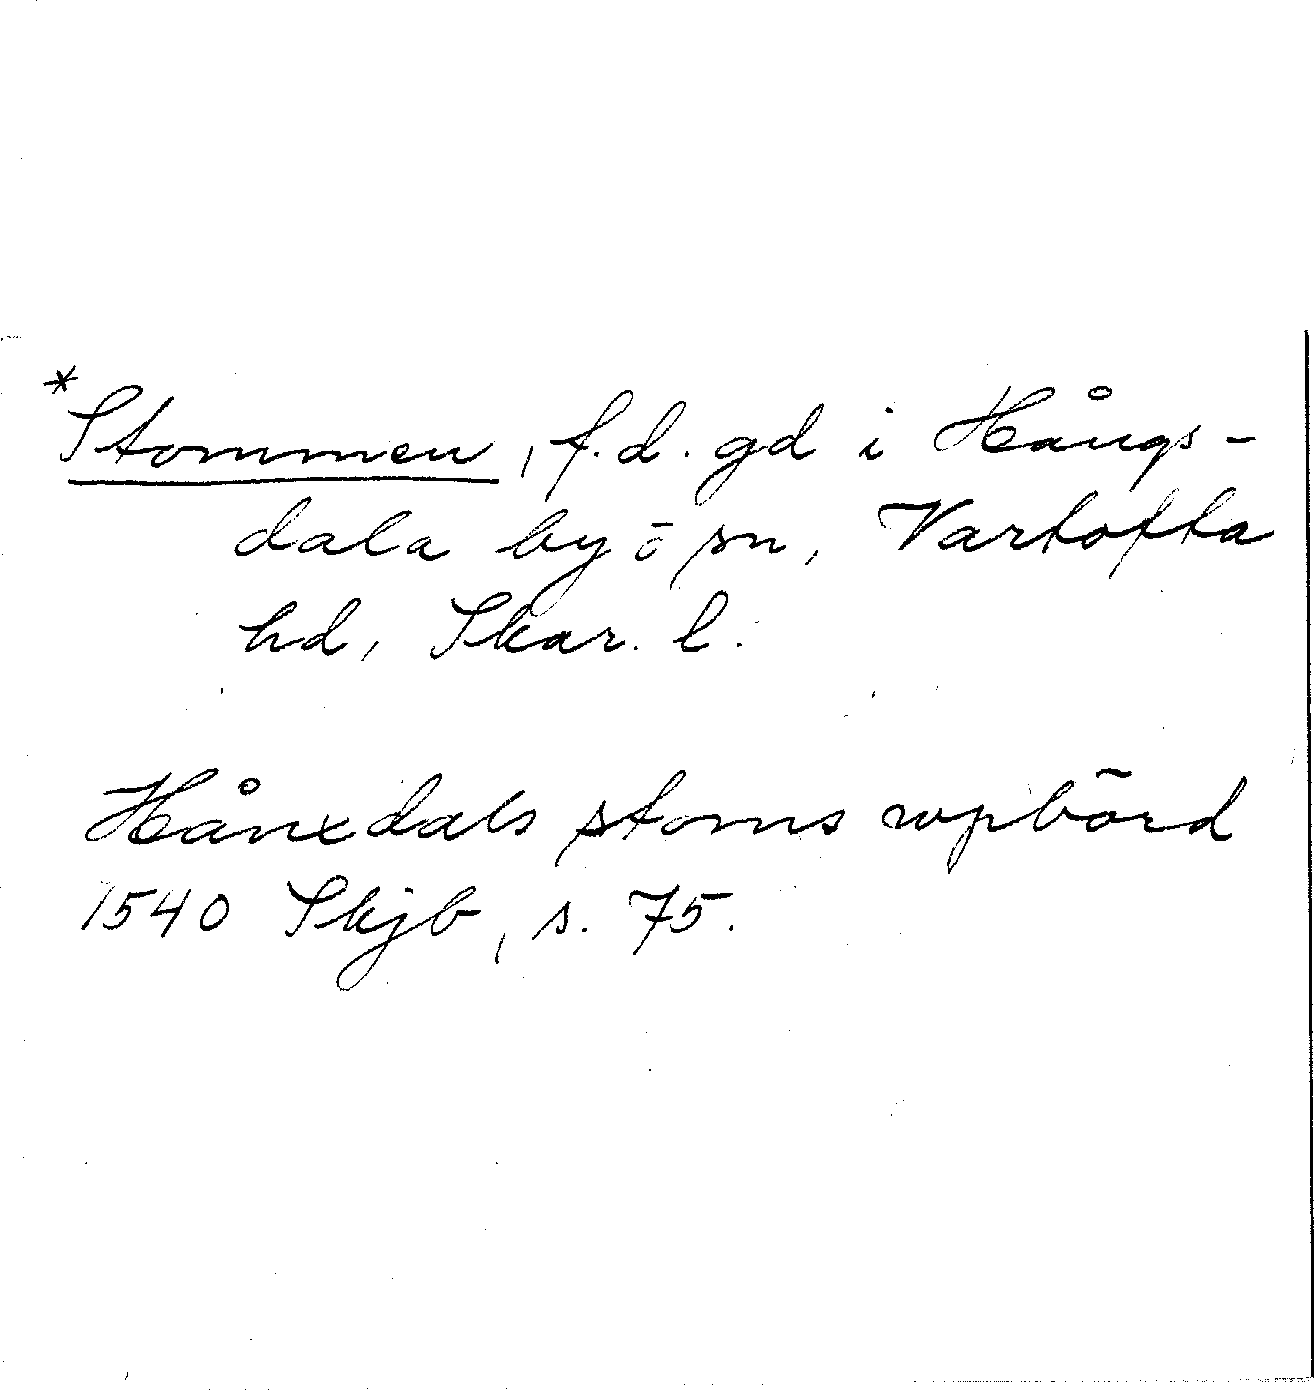 *Stommen, f.d. gd i Hångs-
dala by ō sn, Vartofta
hd, Skar. l.
Hånxdals stoms wpbörd
1540 Skjb, s. 75.